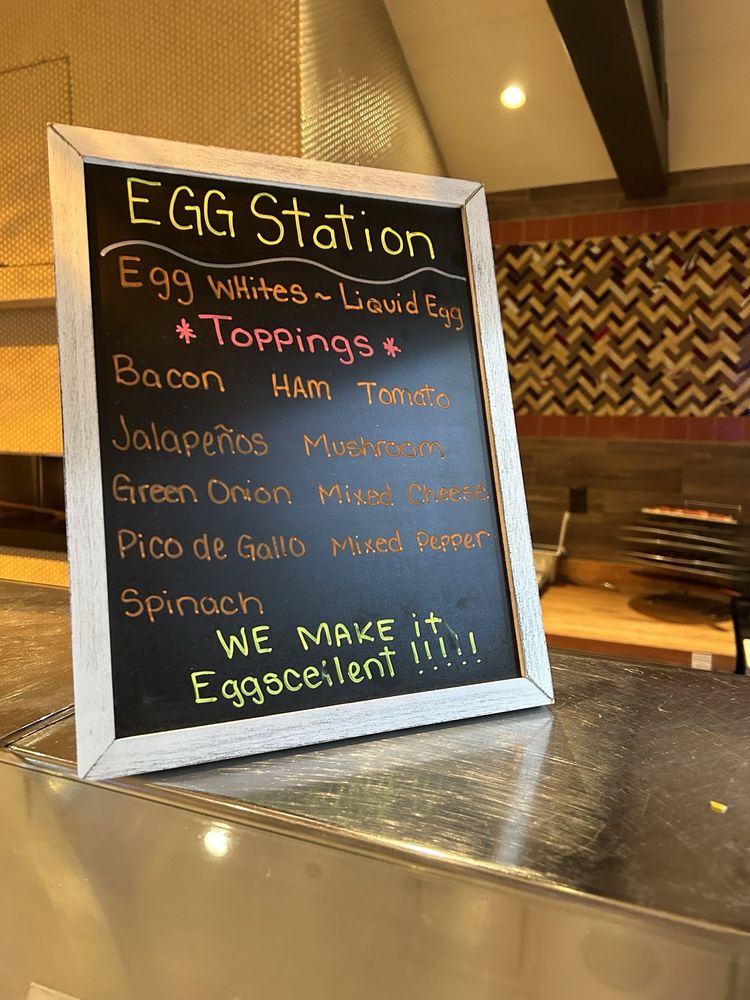 EGG Station
Egg WHites ~ Liquid Egg
*Toppings*
Bacon HAm Tomato
Jalapeños Mushroom
Green Onion Mixed Cheese
Pico de Gallo Mixed Pepper
Spinach
WE MAKE it
Eggsceilent !!!!!